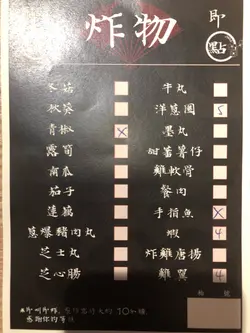 炸物
即
點
冬菇
秋葵
青椒 x
露筍
南瓜
茄子
蓮藕
蔥爆豬肉丸
芝士丸
芝心腸
牛丸
洋蔥圈 5
墨丸
甜蕃薯仔
雞軟骨
餐肉
手指魚 x
蝦 4
炸雞唐揚
雞翼 4
枱號